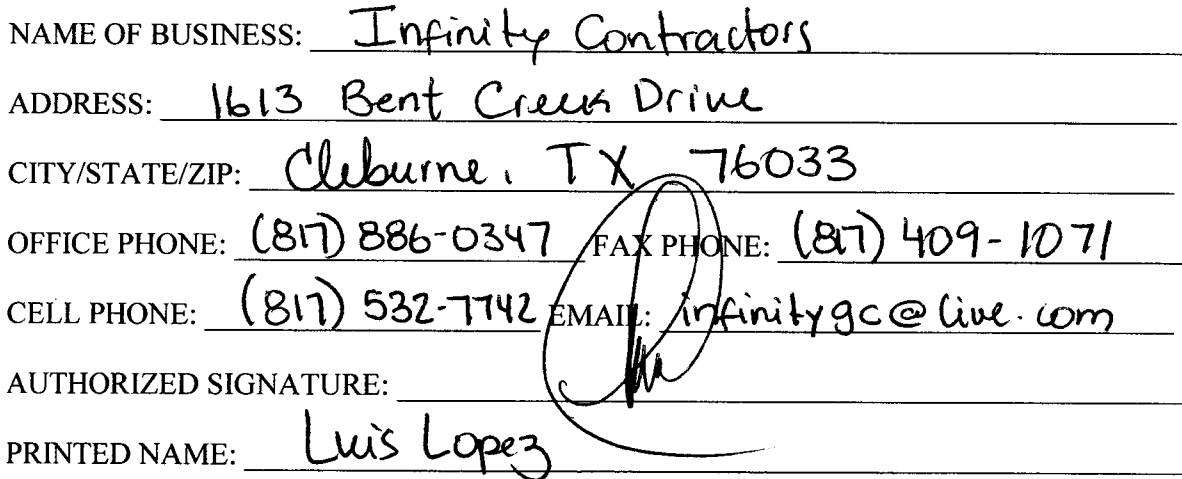 NAME OF BUSINESS: Infinity Contractors
ADDRESS: 1613 Bent Creek Drive
CITY/STATE/ZIP: Cleburne, TX 76033
OFFICE PHONE: (817) 886-0347 FAX PHONE: (817) 409-1071
CELL PHONE: (817) 532-7742 EMAIL: infinitygc@live.com
AUTHORIZED SIGNATURE:
PRINTED NAME: Luis Lopez